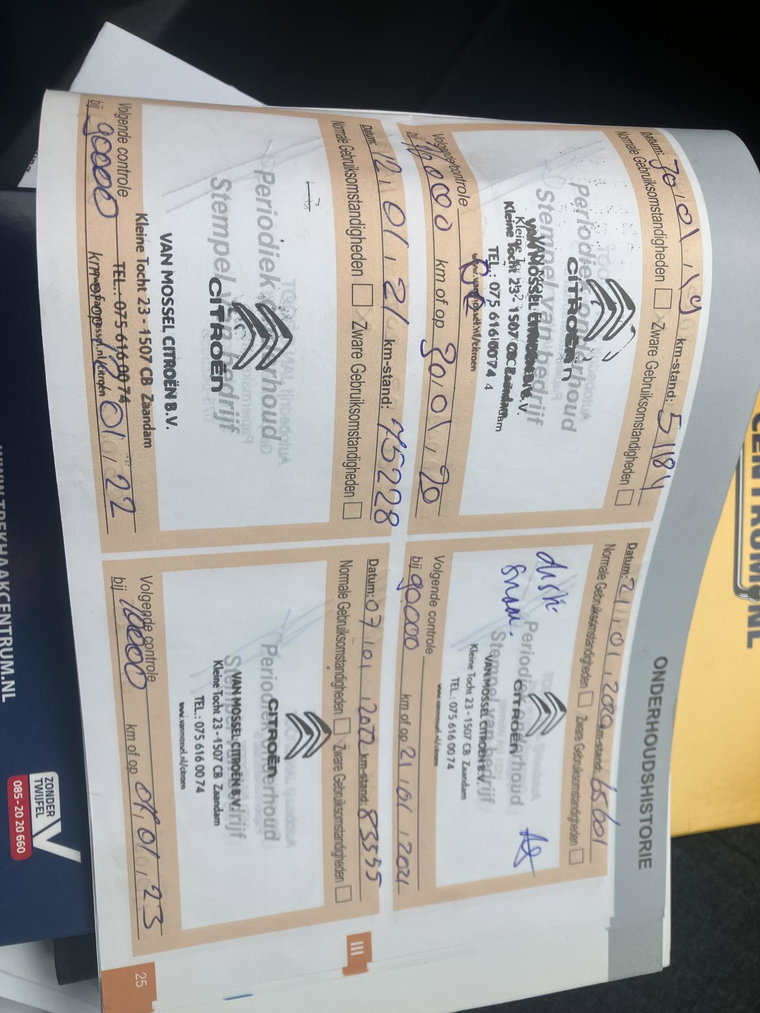 ONDERHOUDSHISTORIE
Datum: 30, 01, 19 km-stand: 51184
Normale Gebruiksomstandigheden Zware Gebruiksomstandigheden
Periodiek onderhoud
Stempel van bedrijf
CITROËN
VAN MOSSEL CITROËN B.V.
Kleine Tocht 23 - 1507 CB Zaandam
TEL.: 075 616 00 74
Volgende controle
bij km of op 30, 01, 20
Datum: 21, 01, 2020 km-stand: 65601
Normale Gebruiksomstandigheden Zware Gebruiksomstandigheden
Periodiek onderhoud
Stempel van bedrijf
CITROËN
VAN MOSSEL CITROËN B.V.
Kleine Tocht 23 - 1507 CB Zaandam
TEL.: 075 616 00 74
www.vanmossel.nl/citroen
Volgende controle
bij 90000 km of op 21, 01, 2021
Datum: 12, 01, 21 km-stand: 75228
Normale Gebruiksomstandigheden Zware Gebruiksomstandigheden
Periodiek onderhoud
Stempel van bedrijf
CITROËN
VAN MOSSEL CITROËN B.V.
Kleine Tocht 23 - 1507 CB Zaandam
TEL.: 075 616 00 74
www.vanmossel.nl/citroen
Volgende controle
bij 90000 km of op 01, 22
Datum: 07, 01, 2022 km-stand: 83555
Normale Gebruiksomstandigheden Zware Gebruiksomstandigheden
Periodiek onderhoud
Stempel van bedrijf
CITROËN
VAN MOSSEL CITROËN B.V.
Kleine Tocht 23 - 1507 CB Zaandam
TEL.: 075 616 00 74
www.vanmossel.nl/citroen
Volgende controle
bij km of op 07, 01, 23
III
25
WWW.TREKHAAKCENTRUM.NL
ZONDER
TWIJFEL
085-20 20 660